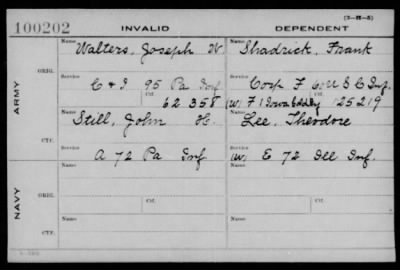 (3-H-5)
100202 INVALID DEPENDENT
Name Walters, Joseph W Name Shadrick, Frank
ARMY
ORIG.
Service C & I 95 Pa Inf Service Corp F 6 U S C Inf.
Ctf. 62 358 Ctf. (W) F 1 Iowa 125219
Name Still, John H. Name Lee, Theodore
CTF.
Service A 72 Pa Inf Service (W) E 72 Ill Inf.
NAVY
Name Name
ORIG.
Service Ctf. Service Ctf.
Name Name
CTF.
Service Service